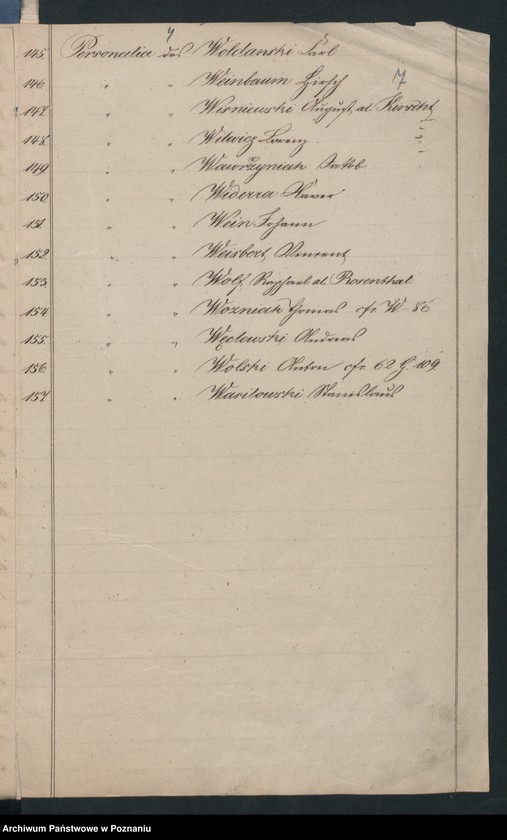 145. Personalia des Woldanski Carl
146 " " Weinbaum Hirsch 7
147 " " Wisniewski August, al.
148 " " Wilwicz Lorenz
149 " " Wawrzyniak Jakob
150 " " Widerra Xaver
151 " " Wein Johann
152 " " Weisbert, Vincent
153 " " Wolf Raphael al. Rosenthal
154 " " Wozniak Thomas cfr. W-86
155 " " Węclewski Andreas
156 " " Wolski Anton cfr. 62 G. 109.
157 " " Wasilowski Stanislaus
Archiwum Państwowe w Poznaniu